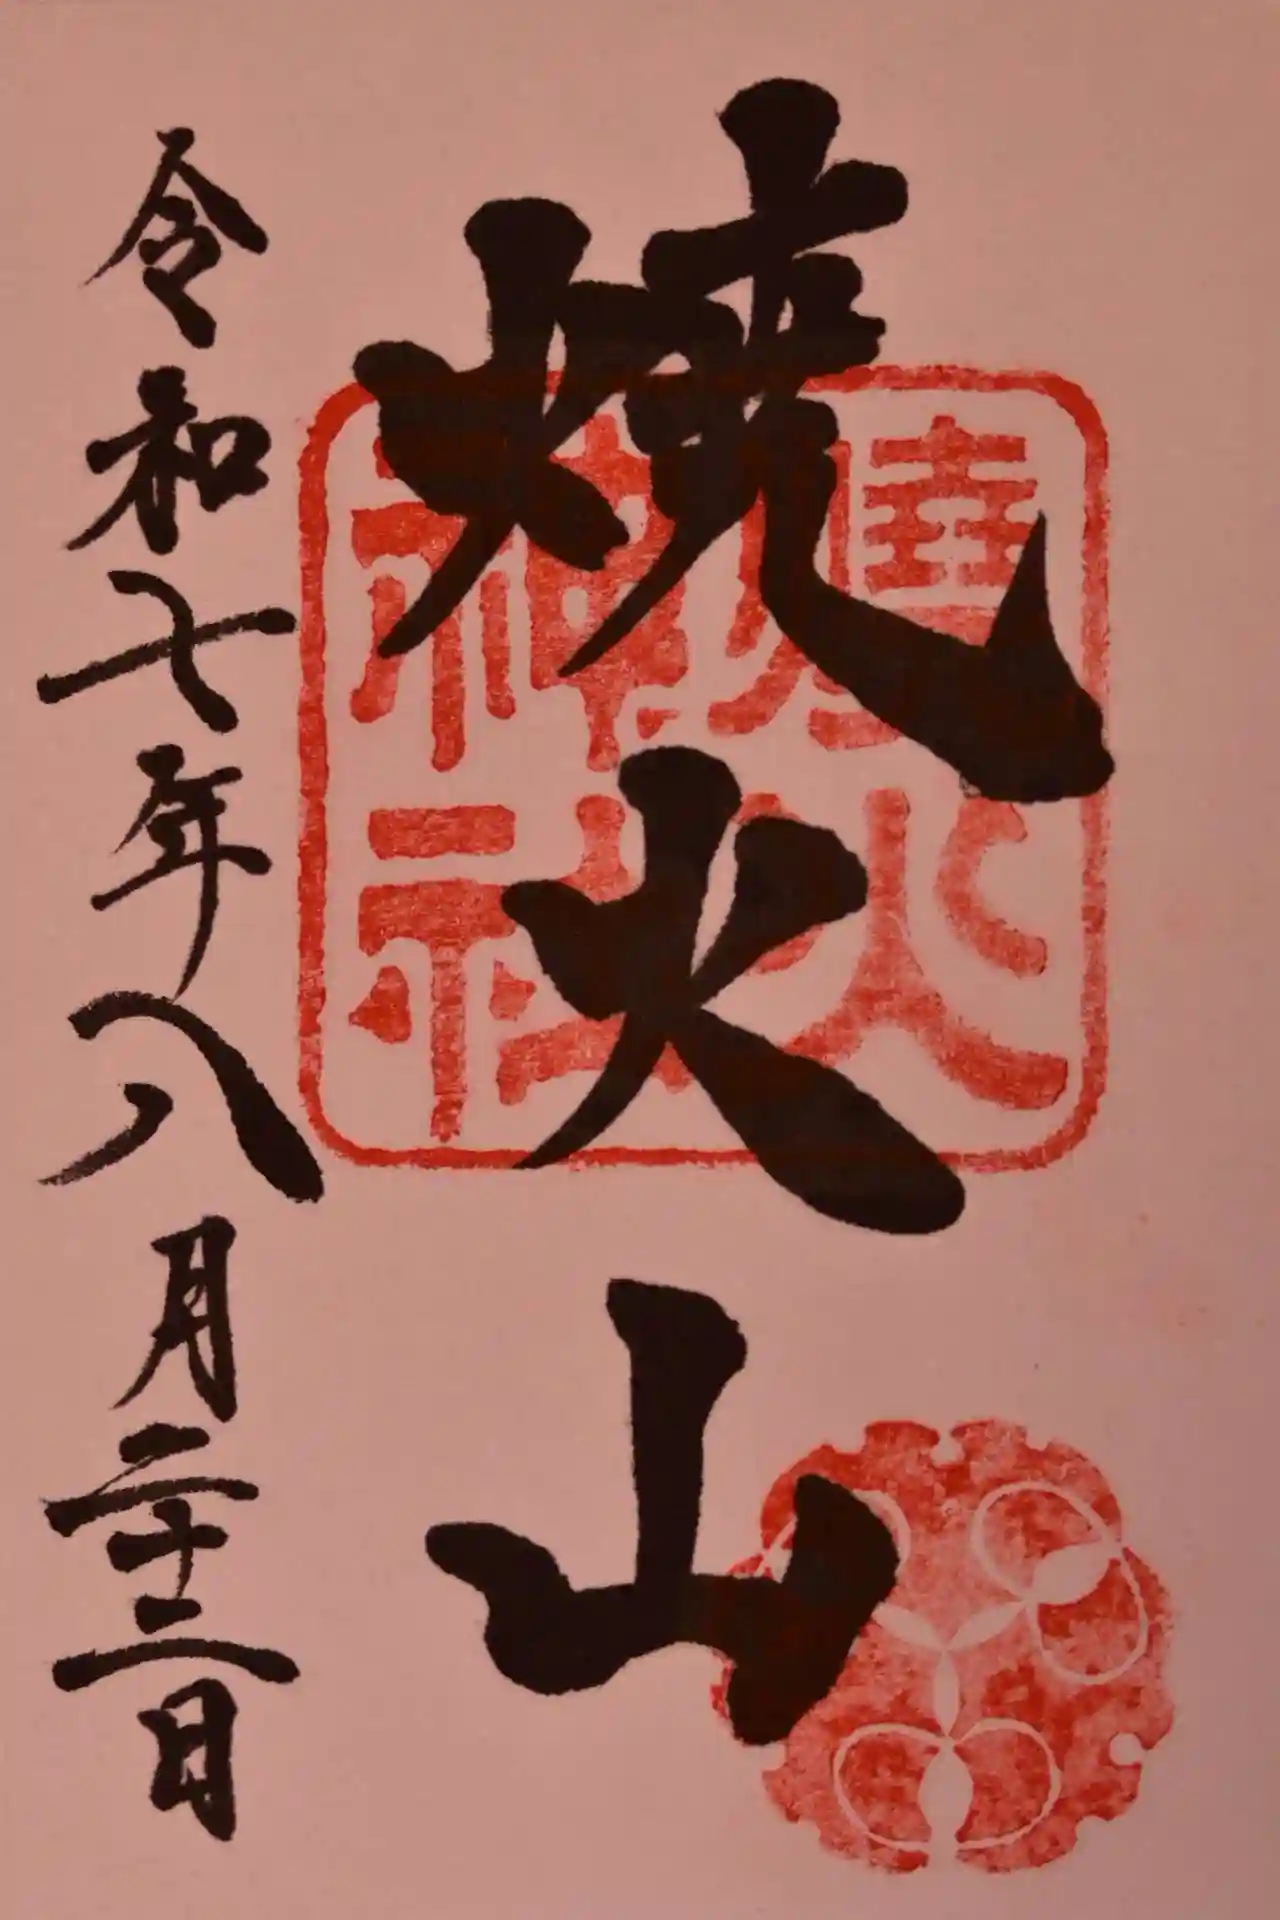 焼火山
燒火
神社
令和七年八月二十二日